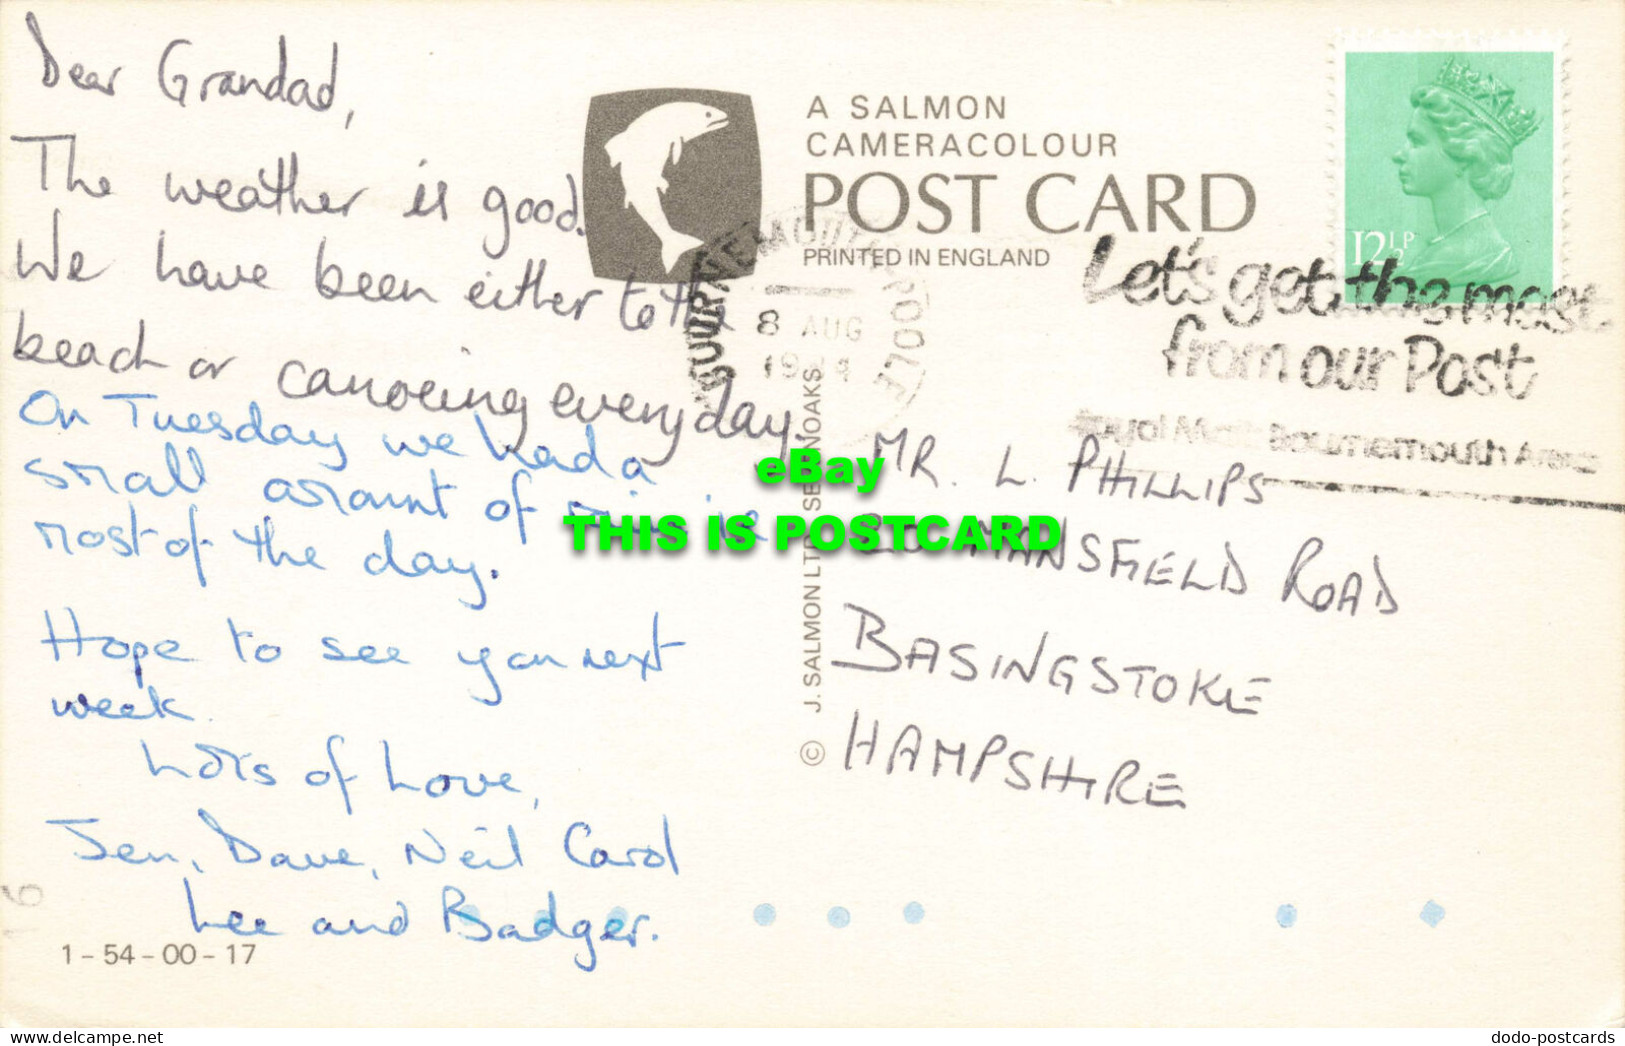 Dear Grandad,
The weather is good.
We have been either to the
beach or canoeing everyday.
On Tuesday we had a
small amount of
most of the day.
Hope to see you next
week
Lots of Love,
Jen, Dave, Neil Carol
Lee and Badger.
1-54-00-17
A SALMON
CAMERACOLOUR
POST CARD
PRINTED IN ENGLAND
BOURNEMOUTH POOLE
8 AUG
12½P
Let's get the most
from our Post
Royal Mail Bournemouth Area
© J. SALMON LTD. SEVENOAKS
MR. L. PHILLIPS
MANSFIELD ROAD
BASINGSTOKE
HAMPSHIRE
eBay
THIS IS POSTCARD
dodo-postcards